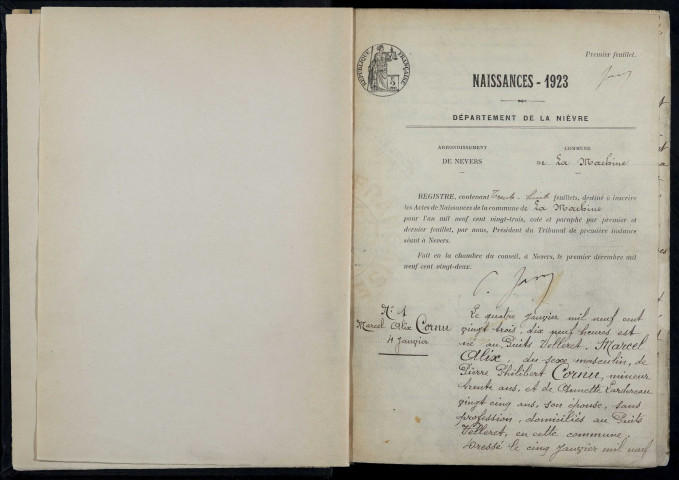 RÉPUBLIQUE FRANÇAISE
Premier feuillet.
NAISSANCES - 1923
DÉPARTEMENT DE LA NIÈVRE
ARRONDISSEMENT
DE NEVERS
COMMUNE
DE La Machine
REGISTRE, contenant Trente-huit feuillets, destiné à inscrire
les Actes de Naissances de la commune de La Machine
pour l'an mil neuf cent vingt-trois, coté et paraphé par premier et
dernier feuillet, par nous, Président du Tribunal de première instance
séant à Nevers.
Fait en la chambre du conseil, à Nevers, le premier décembre mil
neuf cent vingt-deux.
N° 1
Marcel Alix Cornu
4 Janvier
Le quatre Janvier mil neuf cent
vingt trois, dix neuf heures est
né au Puits Velleret, Marcel
Alix, du sexe masculin, de
Pierre Philibert Cornu, mineur
trente ans, et de Annette Lardereau
vingt cinq ans, son épouse, sans
profession, domiciliés au Puits
Velleret, en cette commune.
Dressé le cinq Janvier mil neuf